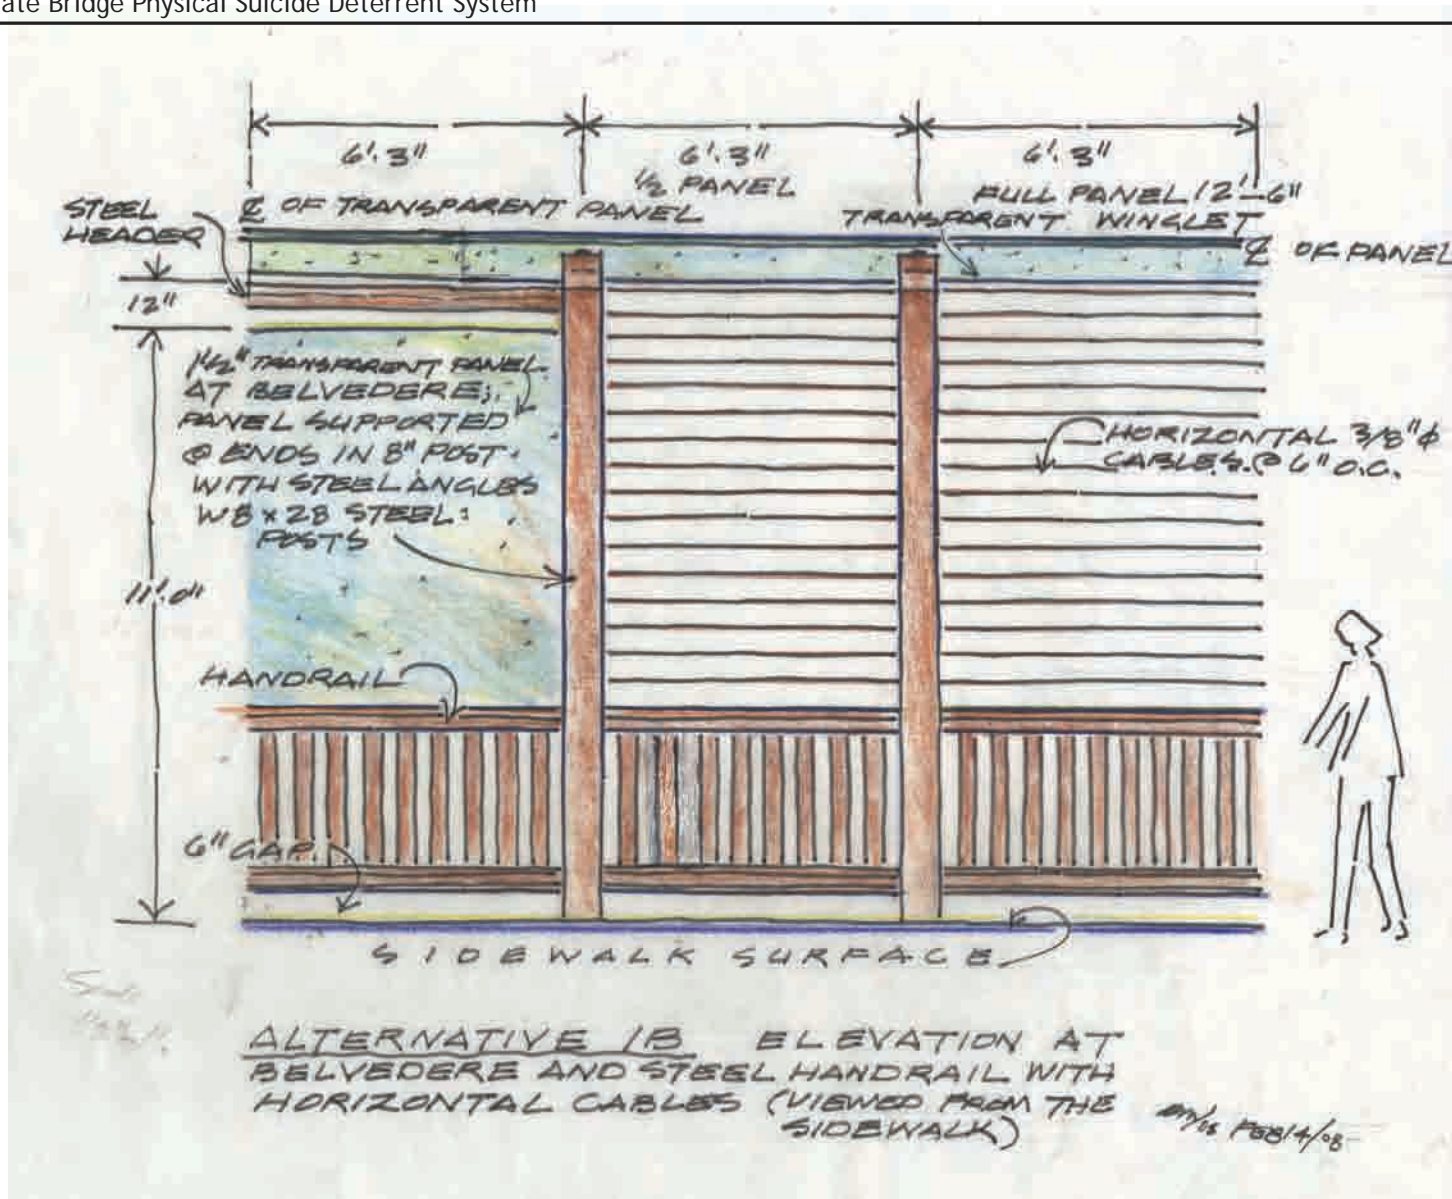 ate Bridge Physical Suicide Deterrent System
6'.3"
6'.3"
6'.3"
½ PANEL
FULL PANEL 12'-6"
STEEL
HEADER
℄ OF TRANSPARENT PANEL
TRANSPARENT WINGLET
℄ OF PANEL
12"
1½" TRANSPARENT PANEL
AT BELVEDERE;
PANEL SUPPORTED
@ ENDS IN 8" POST
WITH STEEL ANGLES
W8 x 28 STEEL
POSTS
HORIZONTAL 3/8" ϕ
CABLES @ 6" O.C.
11'.0"
HANDRAIL
6" GAP
SIDEWALK SURFACE
ALTERNATIVE 1B ELEVATION AT
BELVEDERE AND STEEL HANDRAIL WITH
HORIZONTAL CABLES (VIEWED FROM THE
SIDEWALK)
FEB14/08